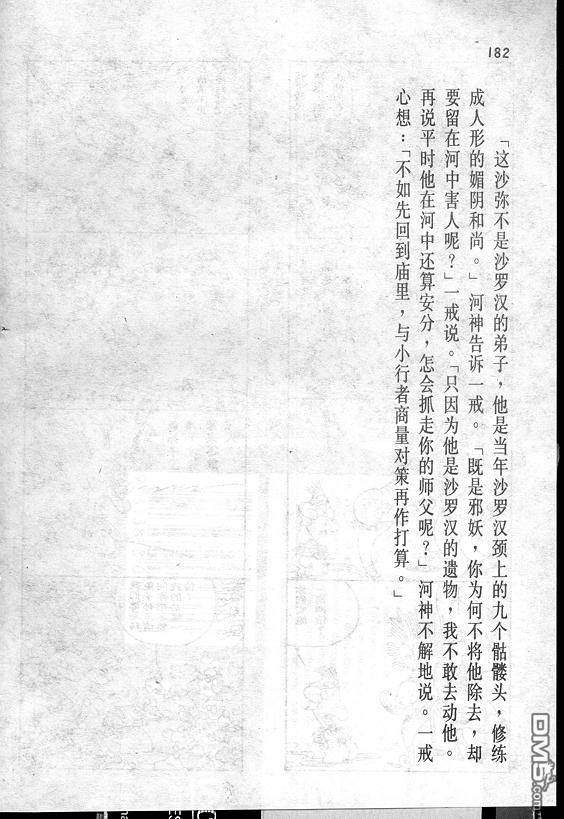 182
「这沙弥不是沙罗汉的弟子，他是当年沙罗汉颈上的九个骷髅头，修练
成人形的媚阴和尚。」河神告诉一戒。「既是邪妖，你为何不将他除去，却
要留在河中害人呢？」一戒说。「只因为他是沙罗汉的遗物，我不敢去动他。
再说平时他在河中还算安分，怎会抓走你的师父呢？」河神不解地说。一戒
心想：「不如先回到庙里，与小行者商量对策再作打算。」